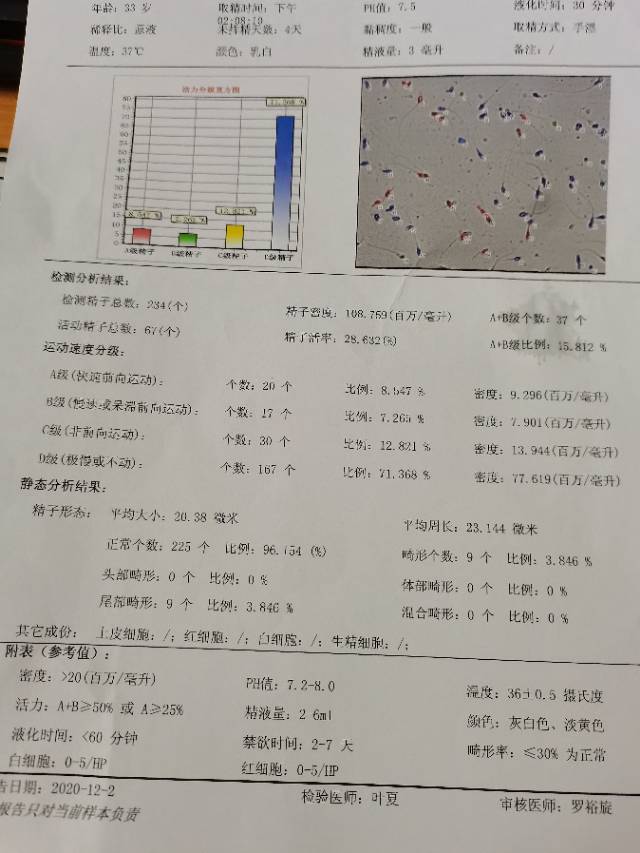 年龄：33 岁 取精时间：下午 02:08:19 PH值：7.5 液化时间：30 分钟
稀释比：原液 未排精天数：4天 黏稠度：一般 取精方式：手淫
温度：37℃ 颜色：乳白 精液量：3 毫升 备注：/
活力分级直方图
80
75
70
65
60
55
50
45
40
35
30
25
20
15
10
5
0
8.547 % 7.265 % 12.821 % 71.368 %
A级精子 B级精子 C级精子 D级精子
检测分析结果：
检测精子总数：234(个) 精子密度：108.759(百万/毫升) A+B级个数：37 个
活动精子总数：67(个) 精子活率：28.632(%) A+B级比例：15.812 %
运动速度分级：
A级(快速前向运动)： 个数：20 个 比例：8.547 % 密度：9.296(百万/毫升)
B级(慢速或呆滞前向运动)： 个数：17 个 比例：7.265 % 密度：7.901(百万/毫升)
C级(非前向运动)： 个数：30 个 比例：12.821 % 密度：13.944(百万/毫升)
D级(极慢或不动)： 个数：167 个 比例：71.368 % 密度：77.619(百万/毫升)
静态分析结果：
精子形态： 平均大小：20.38 微米 平均周长：23.144 微米
正常个数：225 个 比例：96.154 (%) 畸形个数：9 个 比例：3.846 %
头部畸形：0 个 比例：0 % 体部畸形：0 个 比例：0 %
尾部畸形：9 个 比例：3.846 % 混合畸形：0 个 比例：0 %
其它成份： 上皮细胞：/；红细胞：/；白细胞：/；生精细胞：/；
附表（参考值）：
密度：>20(百万/毫升) PH值：7.2-8.0 温度：36±0.5 摄氏度
活力：A+B≥50% 或 A≥25% 精液量：2-6ml 颜色：灰白色、淡黄色
液化时间：<60 分钟 禁欲时间：2-7 天 畸形率：≤30% 为正常
白细胞：0-5/HP 红细胞：0-5/HP
告日期：2020-12-2 检验医师：叶夏 审核医师：罗裕旋
报告只对当前样本负责